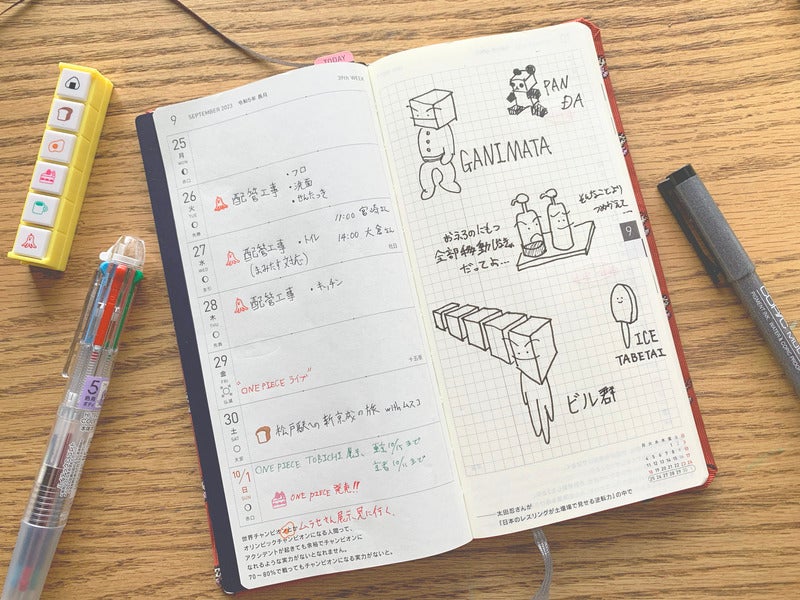 TODAY
39th WEEK
9 SEPTEMBER 2023 令和5年 長月
25
月
MON
26
火
TUE
配管工事
・フロ
・洗面
・せんたっき
27
水
WED
配管工事
・トイレ
11:00
14:00
28
木
THU
配管工事 ・キッチン
29
金
FRI
十五夜
"ONE PIECE ライブ"
30
土
SAT
松戸駅への新京成の旅 withムスコ
10/1
日
SUN
ONE PIECE TOBICHI 展示
ONE PIECE 発売!!
ムラセさん展示見に行く。
世界チャンピオンとか
オリンピックチャンピオンになる人間って、
アクシデントが起きても余裕でチャンピオンに
なれるような実力がないとなれません。
70〜80%で戦ってもチャンピオンになる実力がないと。
PAN
DA
GANIMATA
おふろのにもつ
全部移動しなきゃ
だってよ…
そんなことより
つめかえて
9
ICE
TABETAI
ビル群
太田忍さんが
『日本のレスリングが土壇場で見せる逆転力』の中で
5
COPIC MULTI